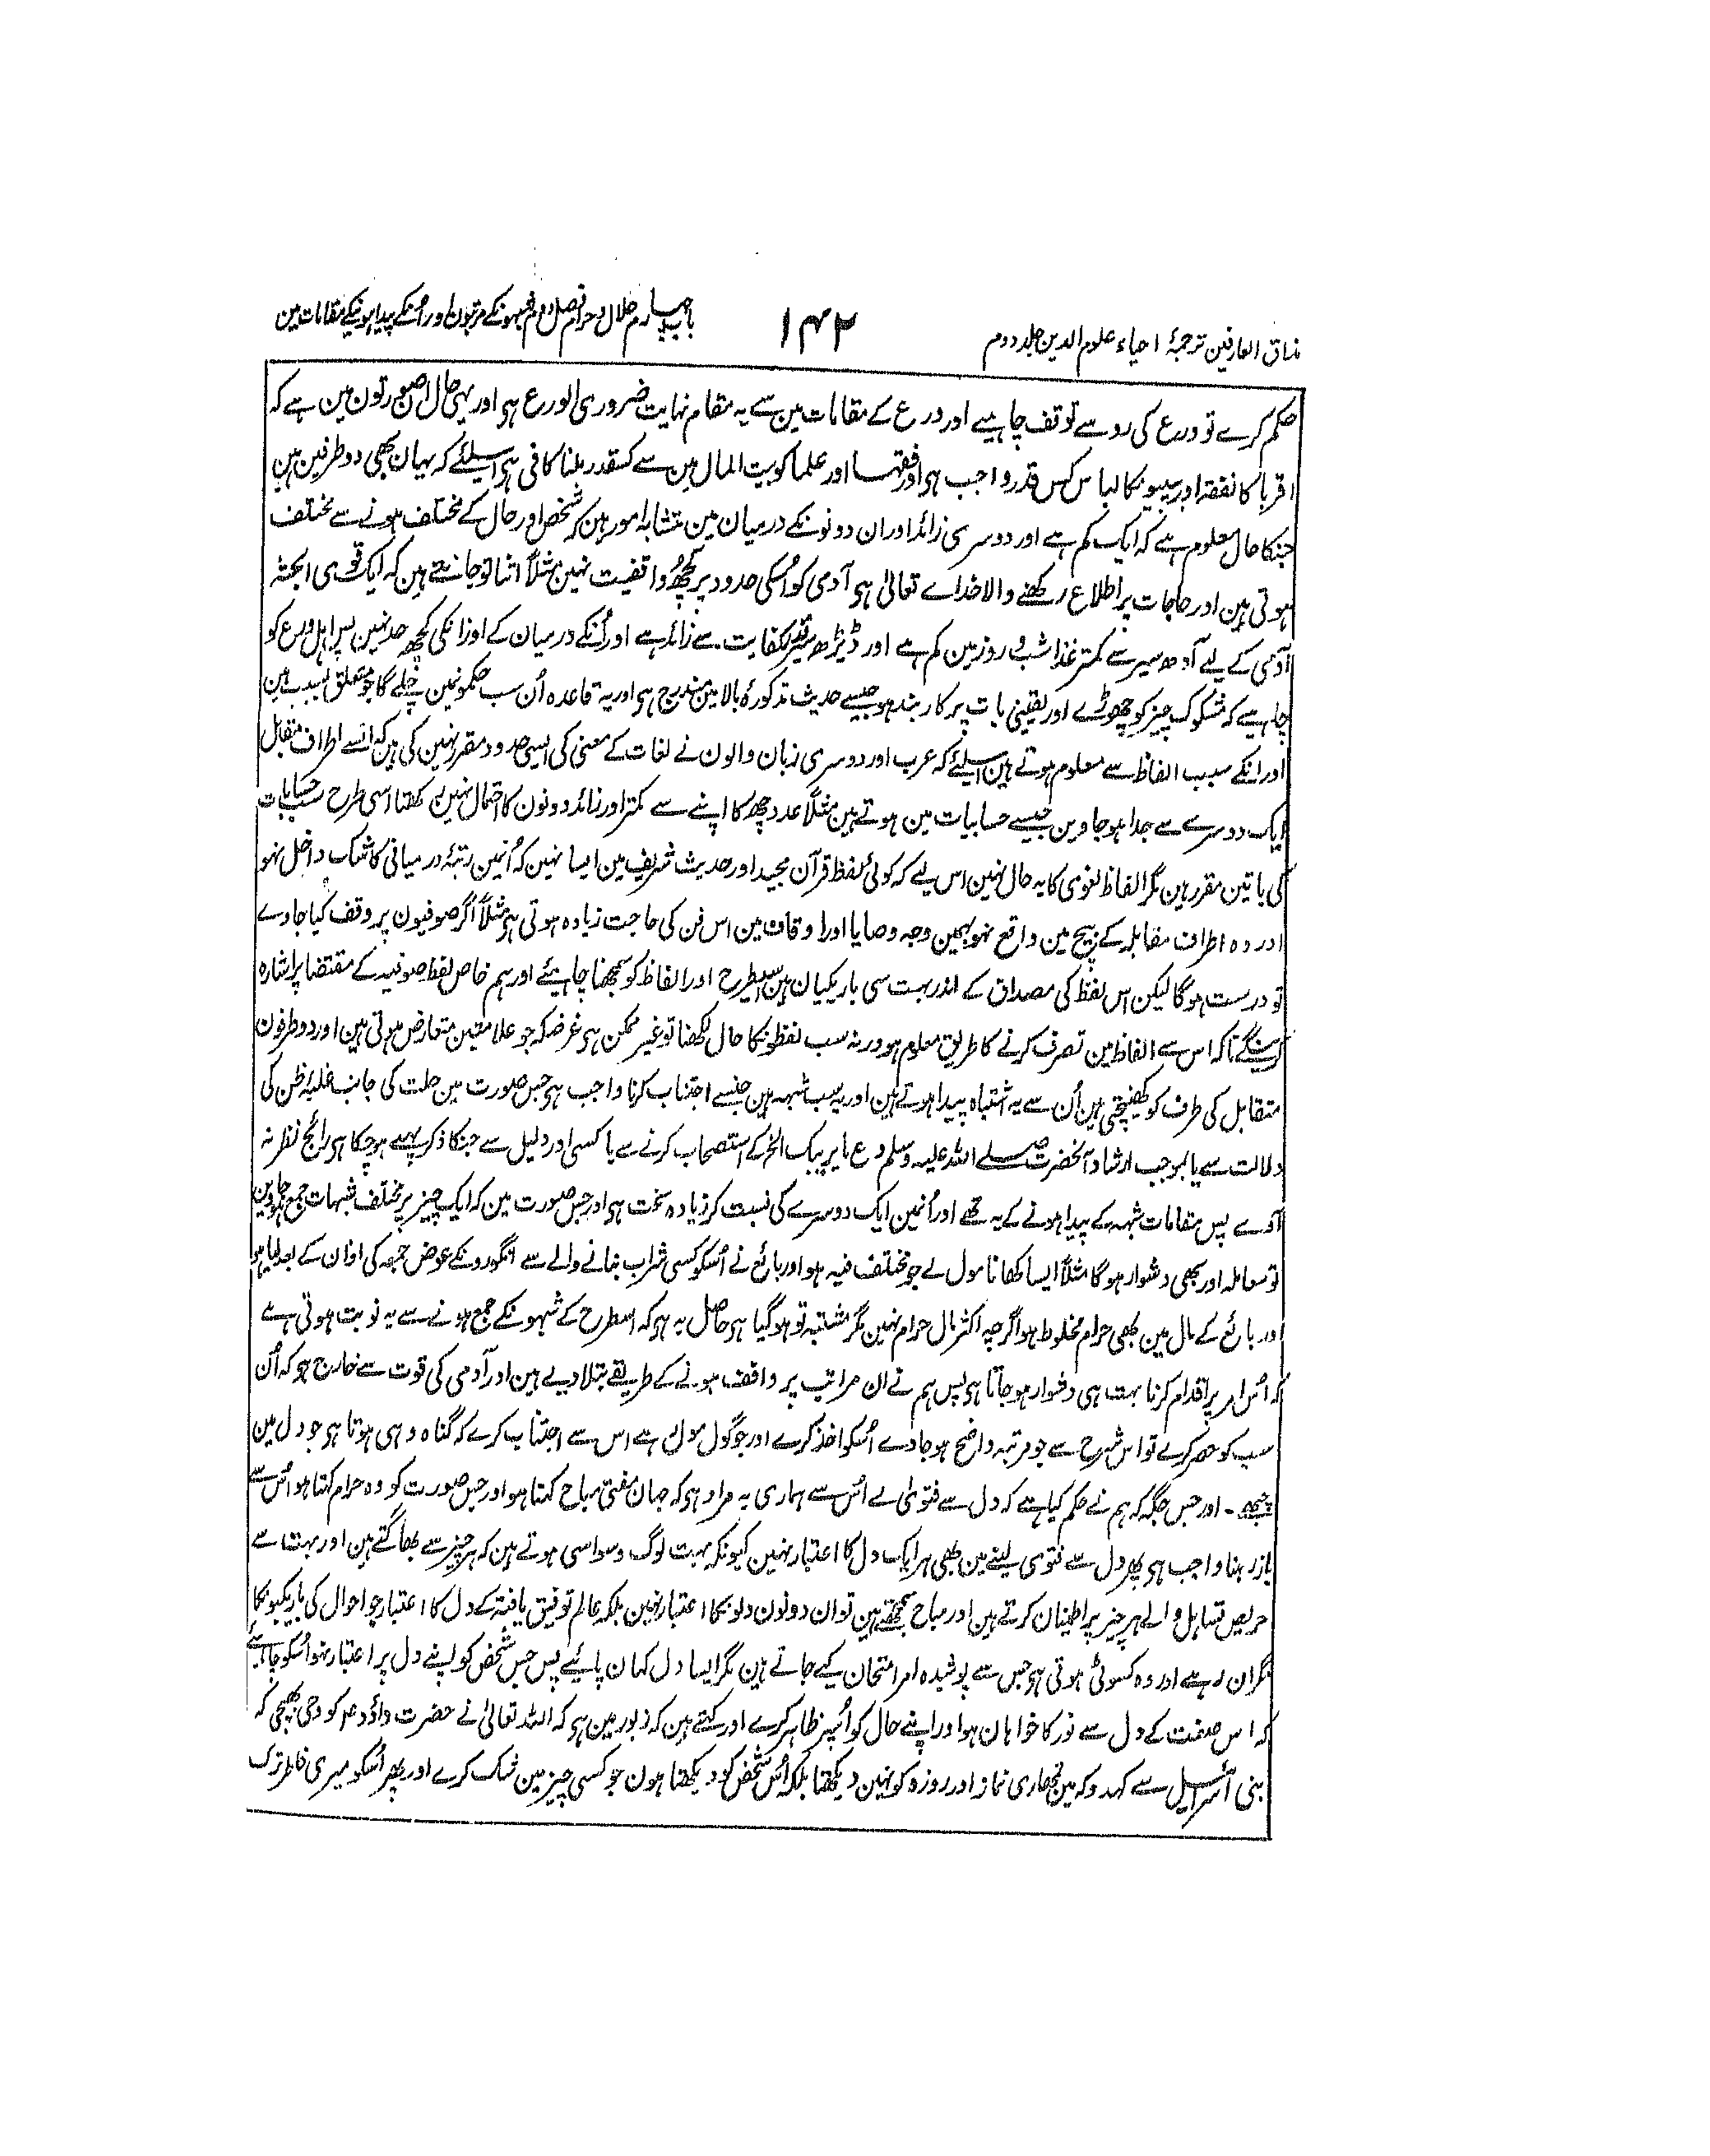 مذاق العارفین ترجمۂ احیاء علوم الدین جلد دوم
۱۴۲
باب چہارم حلال و حرام فصل دوم شبہونکے مرتبون اور اُنکے پیدا ہونیکے مقامات مین
حکم کرے تو ورع کی رو سے توقف چاہیے اور ورع کے مقامات مین سے یہ مقام نہایت ضروری الورع ہی اور یہی حال اُن صورتون مین ہے کہ
اقربا کا نفقہ اور بیبیونکا لباس کس قدر واجب ہی اور فقہا اور علما کو بیت المال مین سے کسقدر ملنا کافی ہی اسیلئے کہ یہان بھی دو طرفین ہین
جنکا حال معلوم ہے کہ ایک کم ہے اور دوسری زائد اور ان دونونکے درمیان مین متشابہ امور ہین کہ شخص اور حال کے مختلف ہونے سے مختلف
ہوتی ہین اور حاجات پر اطلاع رکھنے والا خداے تعالیٰ ہی آدمی کو اُسکی حدود پر کچھ واقفیت نہین مثلاً اتنا تو جانتے ہین کہ ایک قوی الجثہ
آدمی کے لیے آدھ سیر سے کمتر غذا شب و روز مین کم ہے اور ڈیڑھ سیر قدر کفایت سے زائد ہے اور اُنکے درمیان کے اوزانکی کچھ حد نہین پس اہل ورع کو
چاہیے کہ مشکوک چیز کو چھوڑے اور یقینی بات پر کاربند ہو جیسے حدیث مذکورۂ بالا مین مندرج ہی اور یہ قاعدہ اُن سب حکمونمین چلے گا جو متعلق بسبب ہین
اور انکے سبب الفاظ سے معلوم ہوتے ہین اسیلئے کہ عرب اور دوسری زبان والون نے لغات کے معنی کی ایسی حدود مقرر نہین کی ہین کہ انسے اطراف مقابل
ایک دوسرے سے جدا ہو جاوین جیسے حسابیات مین ہوتے ہین مثلاً عدد چھ کا اپنے سے کمتر اور زائد دونون کا احتمال نہین رکھتا اسی طرح سب حسابات
کی باتین مقرر ہین مگر الفاظ لغوی کا یہ حال نہین اس لیے کہ کوئی لفظ قرآن مجید اور حدیث شریف مین ایسا نہین کہ اُنمین رتبۂ درمیانی کا شک داخل نہو
اور وہ اطراف مقابلہ کے بیچ مین واقع نہو بہمین وجہ وصایا اور اوقاف مین اس فن کی حاجت زیادہ ہوتی ہی مثلاً اگر صوفیون پر وقف کیا جاوے
تو درست ہوگا لیکن اس لفظ کی مصداق کے اندر بہت سی باریکیان ہین اسیطرح اور الفاظ کو سمجھنا چاہیئے اور ہم خاص لفظ صوفیہ کے مقتضا پر اشارہ
کرینگے تا کہ اس سے الفاظ مین تصرف کرنے کا طریق معلوم ہو ورنہ سب لفظونکا حال لکھنا تو غیر ممکن ہی غرضکہ جو علامتین متعارض ہوتی ہین اور دو طرفون
متقابل کی طرف کو کھینچتی ہین اُن سے یہ اشتباہ پیدا ہوتے ہین اور یہ سب شبہہ ہین جنسے اجتناب کرنا واجب ہی جس صورت مین حلت کی جانب غلبۂ ظن کی
دلالت سے یا بموجب ارشاد آنحضرت صلے اللہ علیہ وسلم دع ما یریبک الخ کے استصحاب کرنے سے یا کسی اور دلیل سے جنکا ذکر پہلے ہو چکا ہی رائج نظر نہ
آوے پس مقامات شبہہ کے پیدا ہونے کے یہ تھے اور اُنمین ایک دوسرے کی نسبت کر زیادہ سخت ہی اور جس صورت مین کہ ایک چیز پر مختلف شبہات جمع ہو جاوین
تو معاملہ اور بھی دشوار ہوگا مثلاً ایسا کھانا مول لے جو مختلف فیہ ہو اور بائع نے اُسکو کسی شراب بنانے والے سے انگورونکے عوض جمعہ کی اذان کے بعد لیا ہو
اور بائع کے مال مین بھی حرام مخلوط ہو اگرچہ اکثر مال حرام نہین مگر مشتبہ تو ہو گیا ہی حاصل یہ ہی کہ اسطرح کے شبہونکے جمع ہونے سے یہ نوبت ہوتی ہے
کہ اُس امر پر اقدام کرنا بہت ہی دشوار ہو جاتا ہی پس ہم نے ان مراتب پر واقف ہونے کے طریقے بتلا دیے ہین اور آدمی کی قوت سے خارج ہی کہ اُن
سب کو حصر کرے تو اس شرح سے جو مرتبہ واضح ہو جاوے اُسکو اخذ کرے اور جو گول مول ہے اس سے اجتناب کرے کہ گناہ وہی ہوتا ہی جو دل مین
چبھے۔ اور جس جگہ کہ ہم نے حکم کیا ہے کہ دل سے فتویٰ لے اُس سے ہماری یہ مراد ہی کہ جہان مفتی مباح کہتا ہو اور جس صورت کو وہ حرام کہتا ہو اُس سے
باز رہنا واجب ہی پھر دل سے فتوی لینے مین بھی ہر ایک دل کا اعتبار نہین کیونکہ بہت لوگ وسواسی ہوتے ہین کہ ہر چیز سے بھاگتے ہین اور بہت سے
حریص تساہل والے ہر چیز پر اطمینان کرتے ہین اور مباح سمجھتے ہین تو ان دونون دلونکا اعتبار نہین بلکہ عالم توفیق یافتہ کے دل کا اعتبار جو احوال کی باریکیونکا
نگران رہے اور وہ کسوٹی ہوتی ہی جس سے پوشیدہ امر امتحان کیے جاتے ہین مگر ایسا دل کہان پائیے پس جس شخص کو اپنے دل پر اعتبار نہو اُسکو چاہیئے
کہ اس صفت کے دل سے نور کا خواہان ہو اور اپنے حال کو اُسپر ظاہر کرے اور کہتے ہین کہ زبور مین ہی کہ اللہ تعالیٰ نے حضرت داؤدؑ کو وحی بھیجی کہ
بنی اسرائیل سے کہدو کہ مین تمھاری نماز اور روزہ کو نہین دیکھتا بلکہ اُس شخص کو دیکھتا ہون جو کسی چیز مین شک کرے اور پھر اُسکو میری خاطر ترک